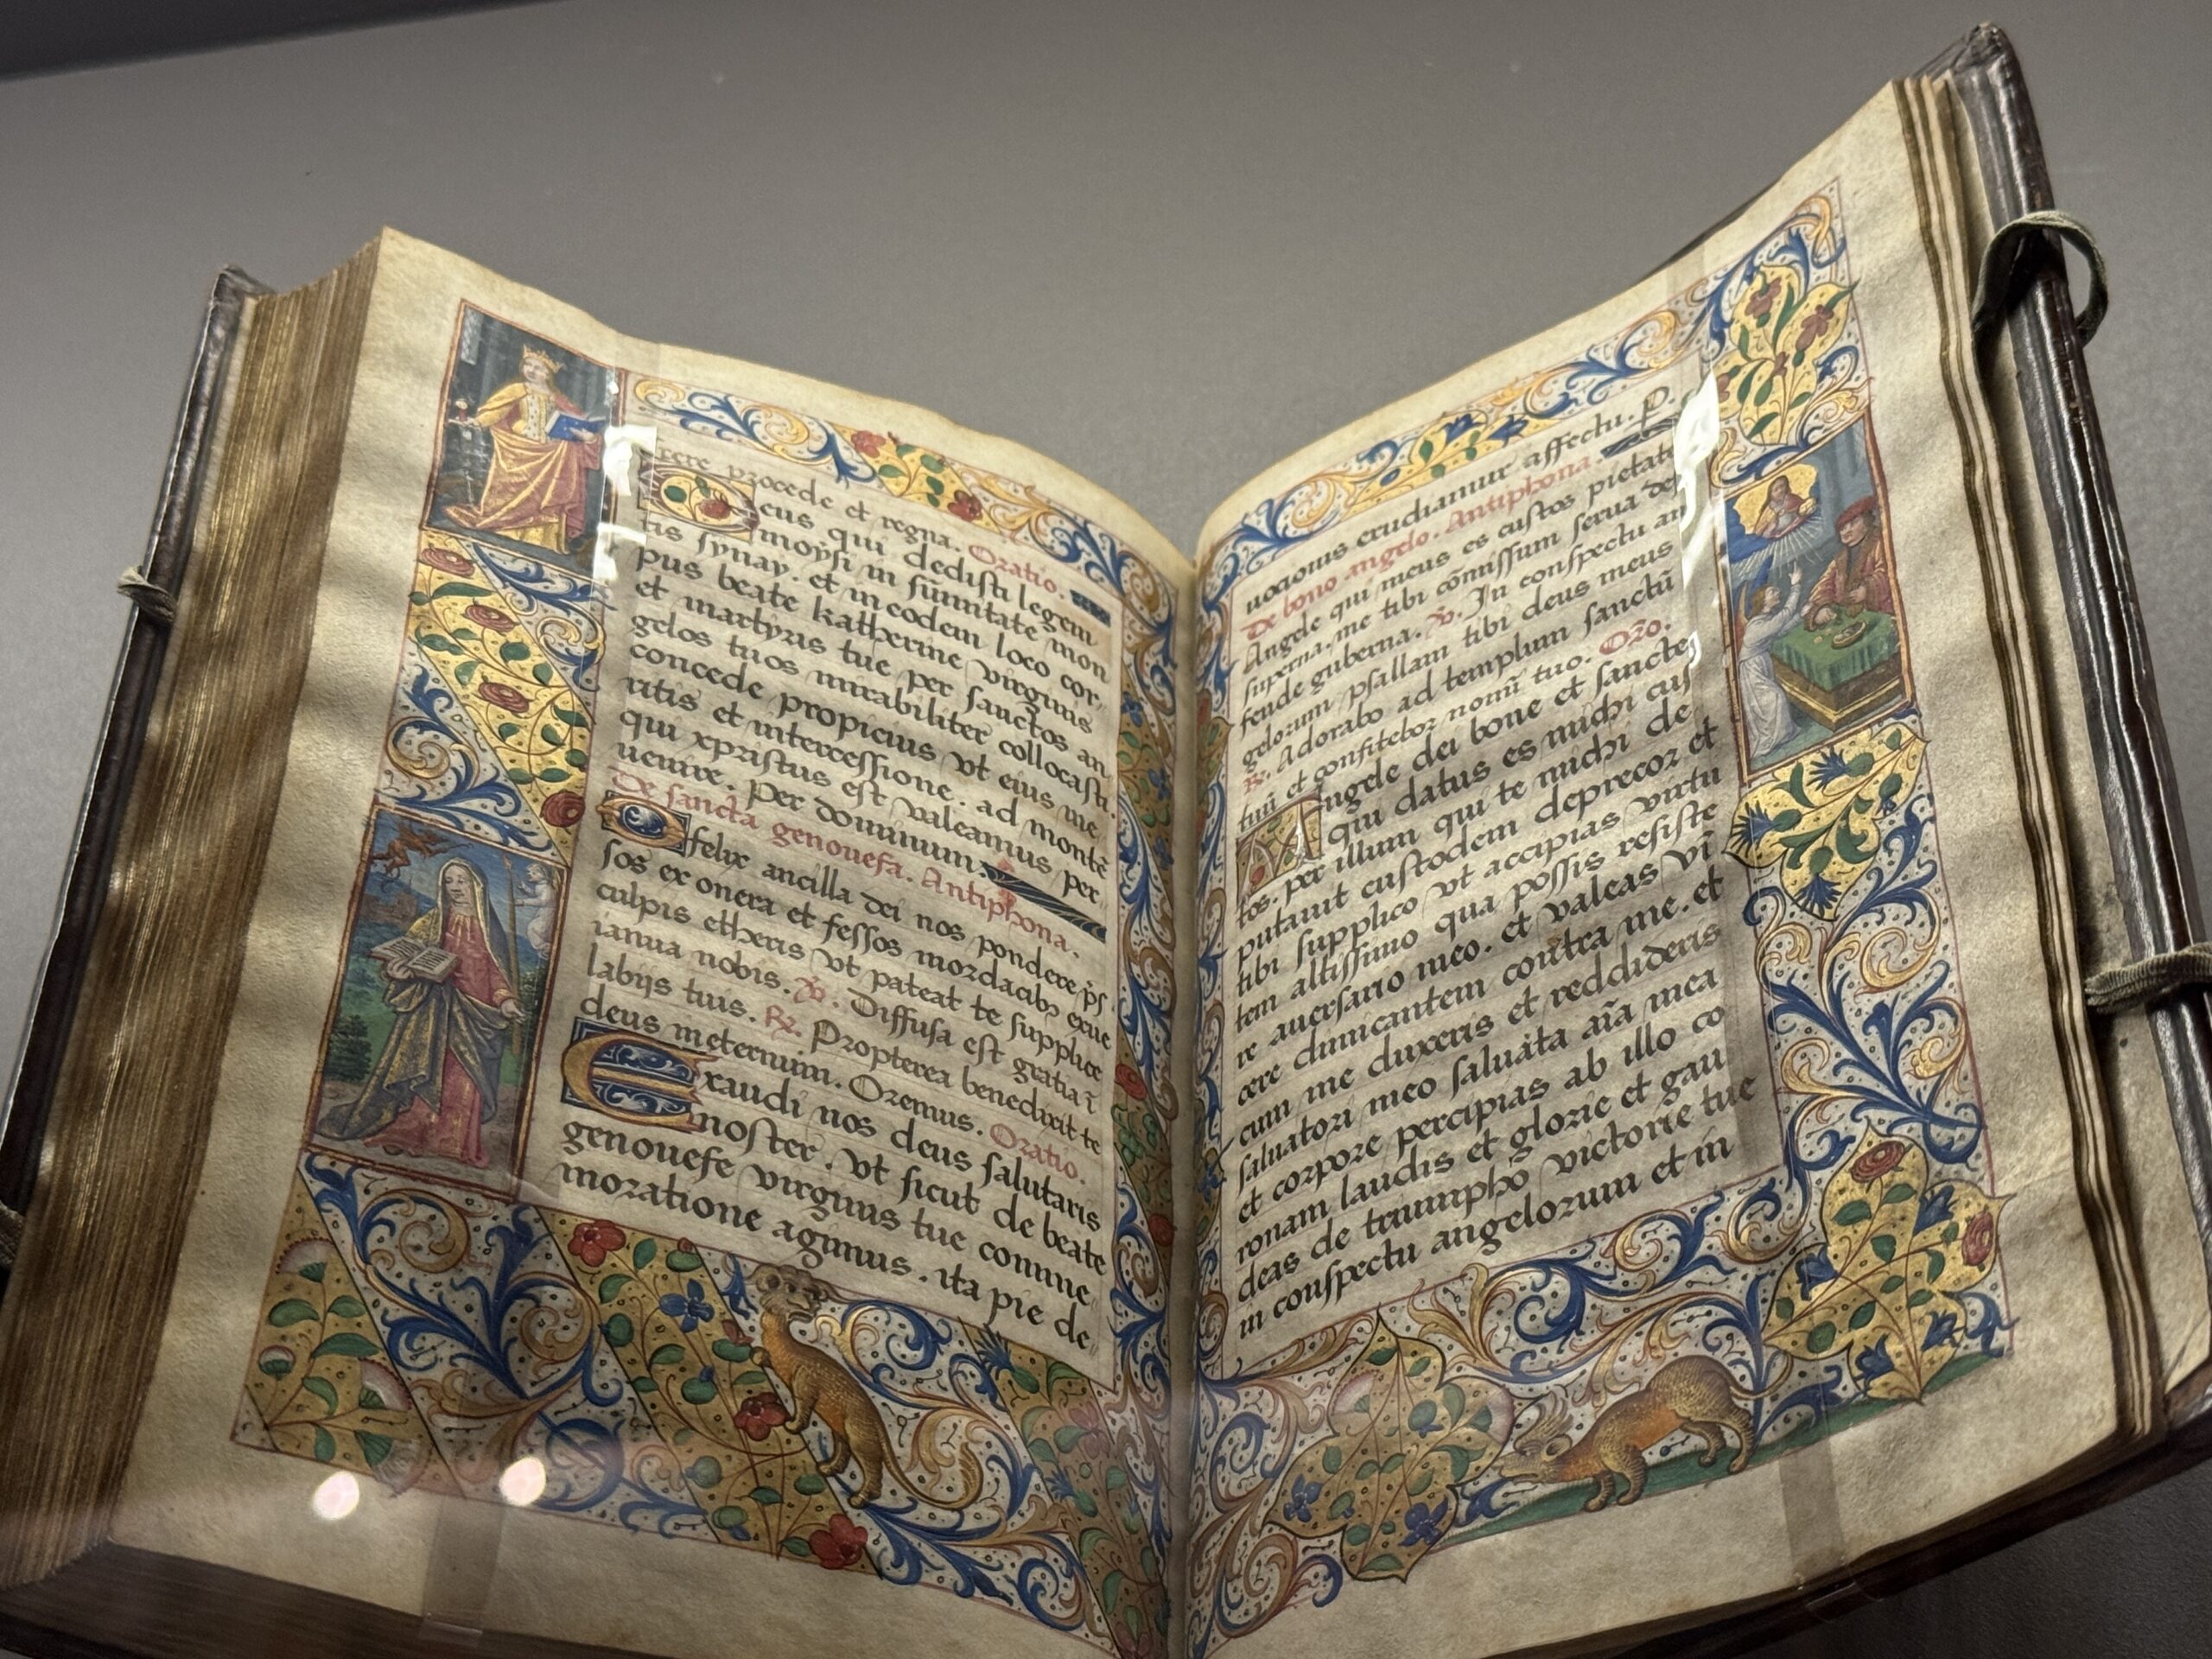 rere procede et regna. Oratio.
Deus qui dedisti legem
moysi in sūmitate mon
tis synay. et in eodem loco cor-
pus beate katherine virginis
et martyris tue per sanctos an
gelos tuos mirabiliter collocasti.
concede propicius vt eius me
ritis et intercessione. ad montē
qui xpristus est valeamus per
uenire. Per dominum.
De sancta genouefa. Antiphona.
O felix ancilla dei nos pondere p̄s
sos ex onera et fessos mordacibꝰ exue
culpis etheris vt pateat te supplice
ianua nobis. ℣. Diffusa est gratia ī
labijs tuis. ℟. Propterea benedixit te
deus meternum. Oremus. Oratio.
Exaudi nos deus salutaris
noster. vt sicut de beate
genouefe virginis tue comme
moratione agimus. ita pie de
uocionis erudiamur affectu. P.
De bono angelo. Antiphona.
Angele qui meus es custos pietate
superna. me tibi cōmissum serua de
fende guberna. ℣. In conspectu an
gelorum psallam tibi deus meus
℟. Adorabo ad templum sanctū
tuū et confitebor nomī tuo. Oro.
Angele dei bone et sancte
qui datus es michi cus
tos. per illum qui te michi de
putauit custodem deprecor et
tibi supplico vt accipias virtu
tem altissimo qua possis resiste
re auersario meo. et valeas vī
cere dimicantem contra me. et
cum me duxeris et reddideris
saluatori meo saluāta aīa mea
et corpore percipias ab illo co
ronam laudis et glorie et gau
deas de triumpho victorie tue
in conspectu angelorum et in